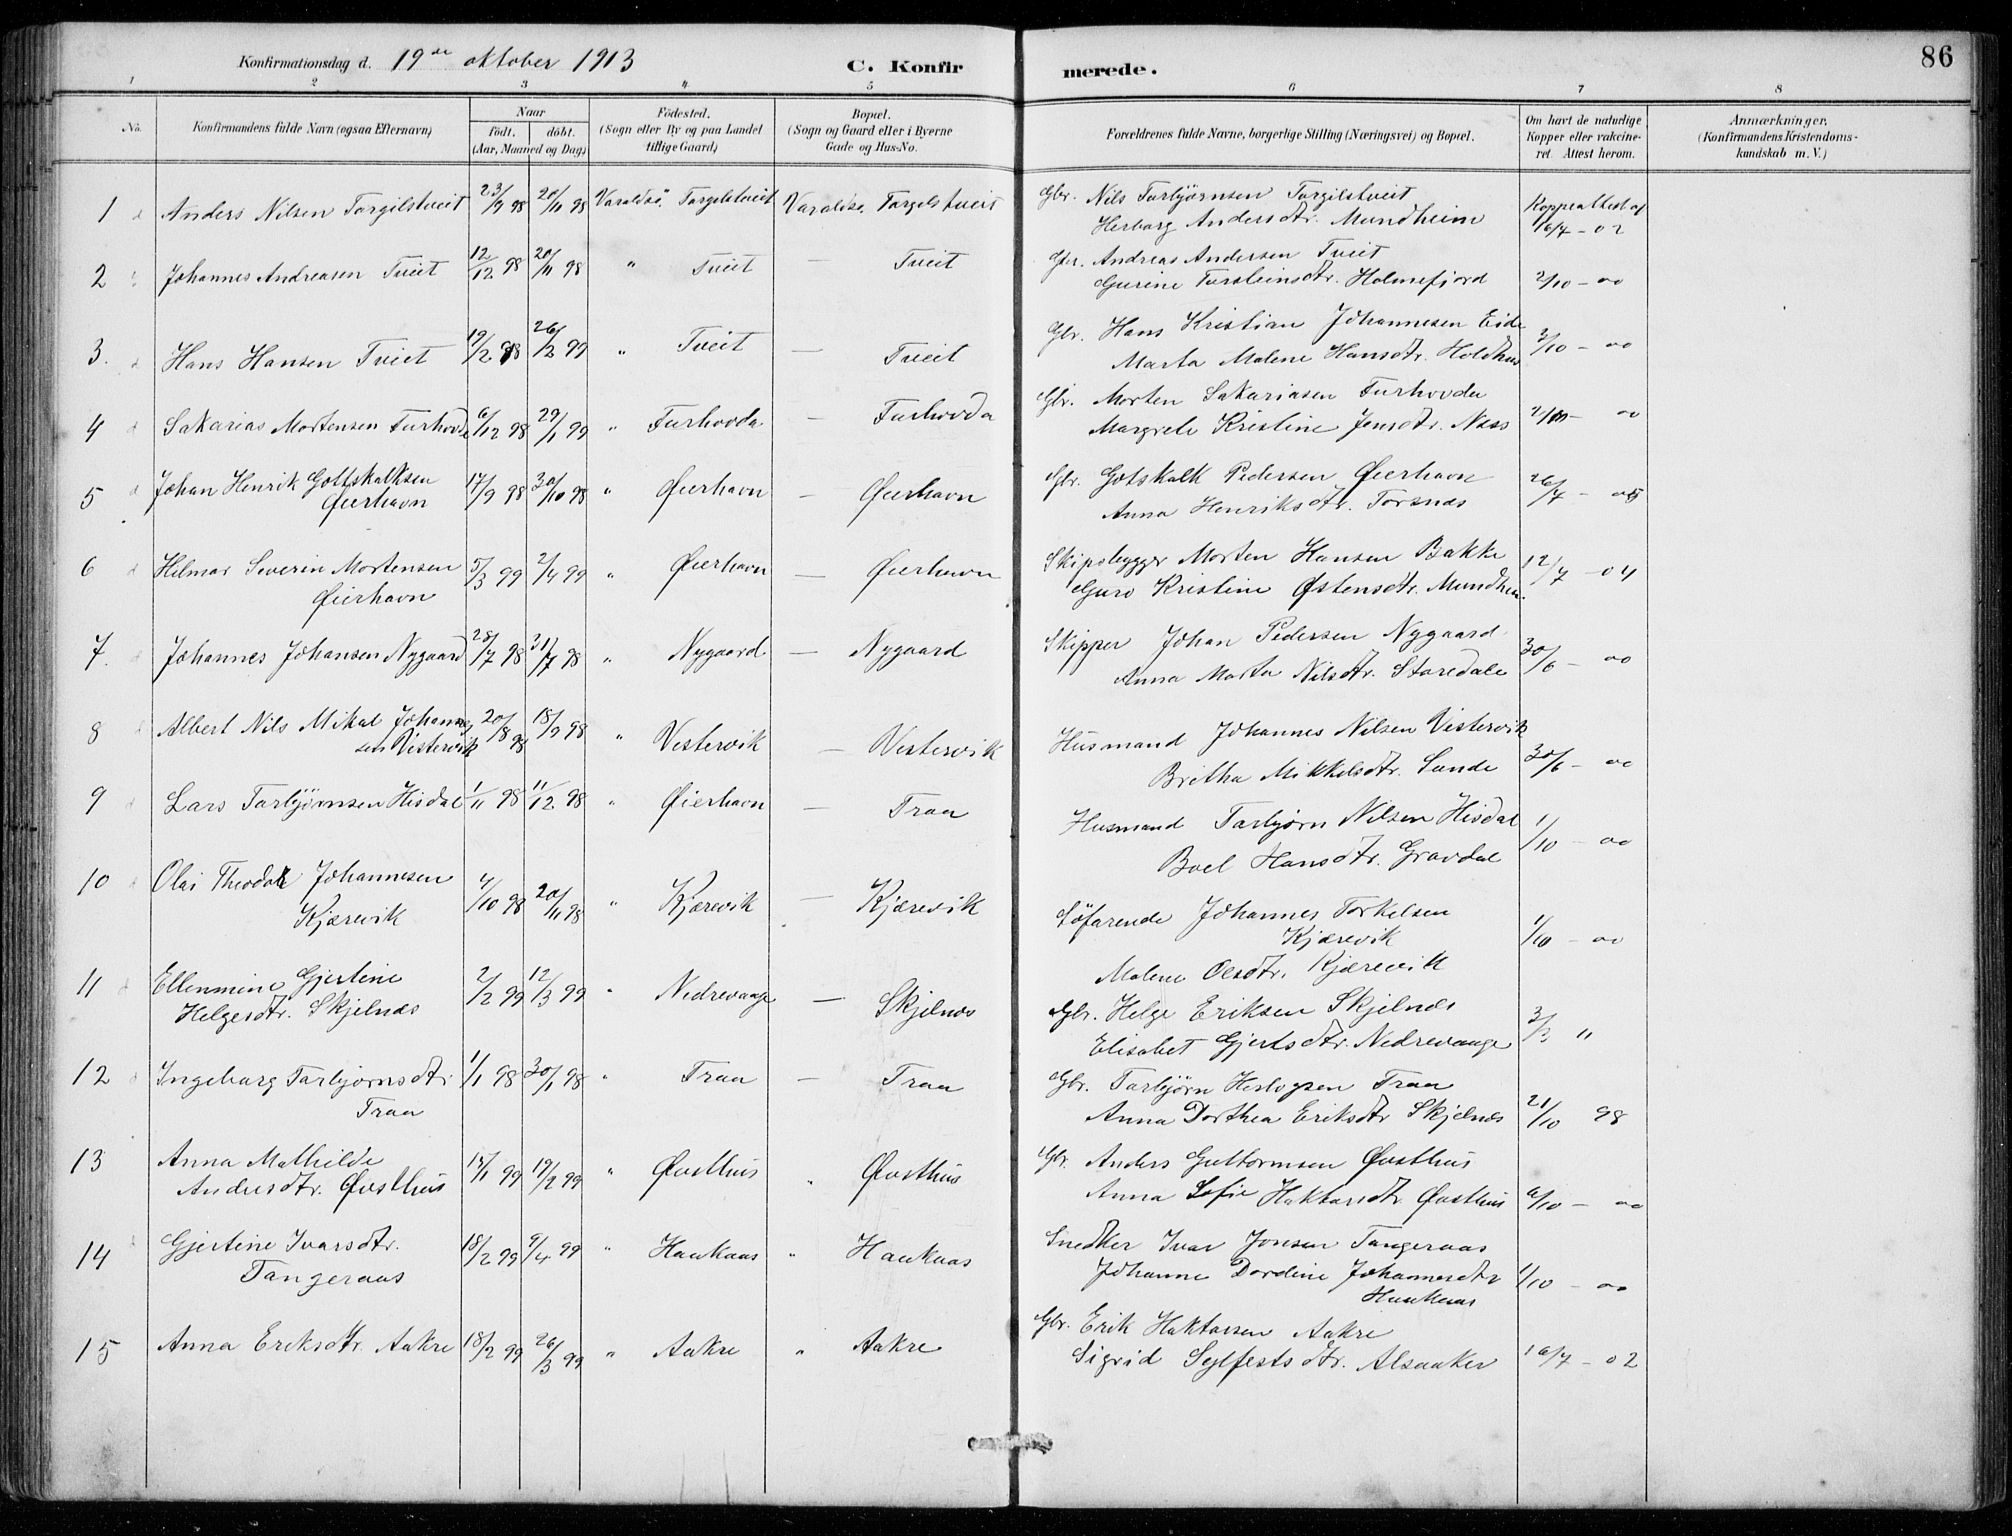 Konfirmationsdag d. 19de oktober 1913
C. Konfirmerede.
86
1 2 3 4 5 6 7 8
No.
Konfirmandens fulde Navn (ogsaa Efternavn)
Naar
födt. döbt.
(Aar, Maaned og Dag)
Födested.
(Sogn eller By og paa Landet
tillige Gaard)
Bopæl.
(Sogn og Gaard eller i Byerne
Gade og Hus-No.
Forældrenes fulde Navne, borgerlige Stilling (Næringsvei) og Bopæl.
Om havt de naturlige
Kopper eller vakcineret.
Attest herom.
Anmærkninger,
(Konfirmandens Kristendomskundskab
m. V.)
1 Anders Nilsen Torgilstveit 23/9 98 20/11 98 Varaldsö, Torgilstveit Varaldsö, Torgilstveit
Gbr. Nils Torbjørnsen Torgilstveit
Herborg Andersdtr. Mundheim
Koppeattest af
16/7 - 02
2 Johannes Andreasen Tveit 12/12 98 20/11 98 " Tveit — Tveit
Gbr. Andreas Andersen Tveit
Gurine Torsteinsdtr. Holmefjord 2/10 - 00
3. Hans Hansen Tveit 19/2 98 26/2 99 " Tveit — Tveit
Gbr. Hans Kristian Johannesen Eide
Marta Malene Hansdtr. Holdhus 2/10 - 00
4 Sakarias Mortensen Furhovda 6/12 98 29/1 99 " Furhovda — Furhovda
Gbr. Morten Sakariasen Furhovda
Margrete Kristine Jensdtr. Næss 2/10 - 00
5 Johan Henrik Gottskalksen
Øierhavn 17/9 98 30/10 98 " Øierhavn — Øierhavn
Gbr. Gotskalk Pedersen Øierhavn
Anna Henriksdtr. Torsnes 26/7 -
6 Hilmar Severin Mortensen
Øierhavn 5/3 99 2/4 99 " Øierhavn — Øierhavn
Skipsbygger Morten Hansen Bakke
Guro Kristine Østensdtr. Mundheim. 12/7 - 04
7. Johannes Johansen Nygaard 28/7 98 31/7 98 " Nygaard — Nygaard
Skipper Johan Pedersen Nygaard
Anna Marta Nilsdtr. Staredale 30/6 - 00
8 Albert Nils Mikal Johannessen
Vestervik 20/8 98 18/9 98 " Vestervik — Vestervik
Husmand Johannes Nilsen Vestervik
Britha Mikkelsdtr. Sunde 30/6 - 00
9 Lars Torbjørnsen Hisdal 1/11 98 11/12 98 " Øierhavn — Traa
Husmand Torbjørn Nilsen Hisdal
Boel Hansdtr. Gravdal 1/10 - 00
10 Olai Theodor Johannesen
Kjærevik 4/10 98 20/11 98 " Kjærevik — Kjærevik
Söfarende Johannes Torkelsen
Kjærevik
Malene Olsdtr. Kjærevik 1/10 - 00
11 Ellenmine Gjertine
Helgesdtr. Skjelnæs 2/2 99 12/3 99 " Nedrevaage — Skjelnæs
Gbr. Helge Eriksen Skjelnæs
Elisabet Gjertsdtr. Nedrevaage 3/3 "
12 Ingeborg Torbjørnsdtr.
Traa 1/1 98 30/1 98 " Traa — Traa
Gbr. Torbjørn Herlogsen Traa
Anna Dorthea Eriksdtr Skjelnæs 21/10 98
13 Anna Mathilde
Andersdtr. Øvsthus 14/1 99 19/2 99 " Øvsthus " Øvsthus
Gbr. Anders Guttormsen Øvsthus
Anna Sofie Haktorsdtr Øvsthus 6/10 - 00
14 Gjertine Ivarsdtr.
Tangeraas 18/2 99 9/4 99 " Haukaas " Haukaas
Snedker Ivar Jonsen Tangeraas
Johanne Dordine Johannesdtr
Haukaas 1/10 - 00
15 Anna Eriksdtr. Aakre 18/2 99 26/3 99 " Aakre " Aakre
Gbr. Erik Haktorsen Aakre
Sigrid Sylfestsdtr. Alsaaker 16/7 - 02